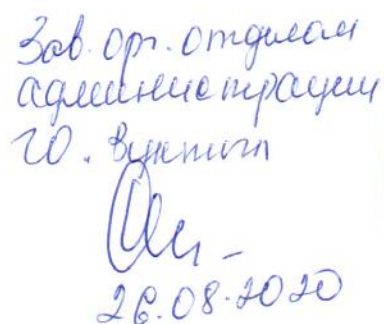 Зав. орг. отделом
администрации
ГО. Вуктыл
26.08.2020